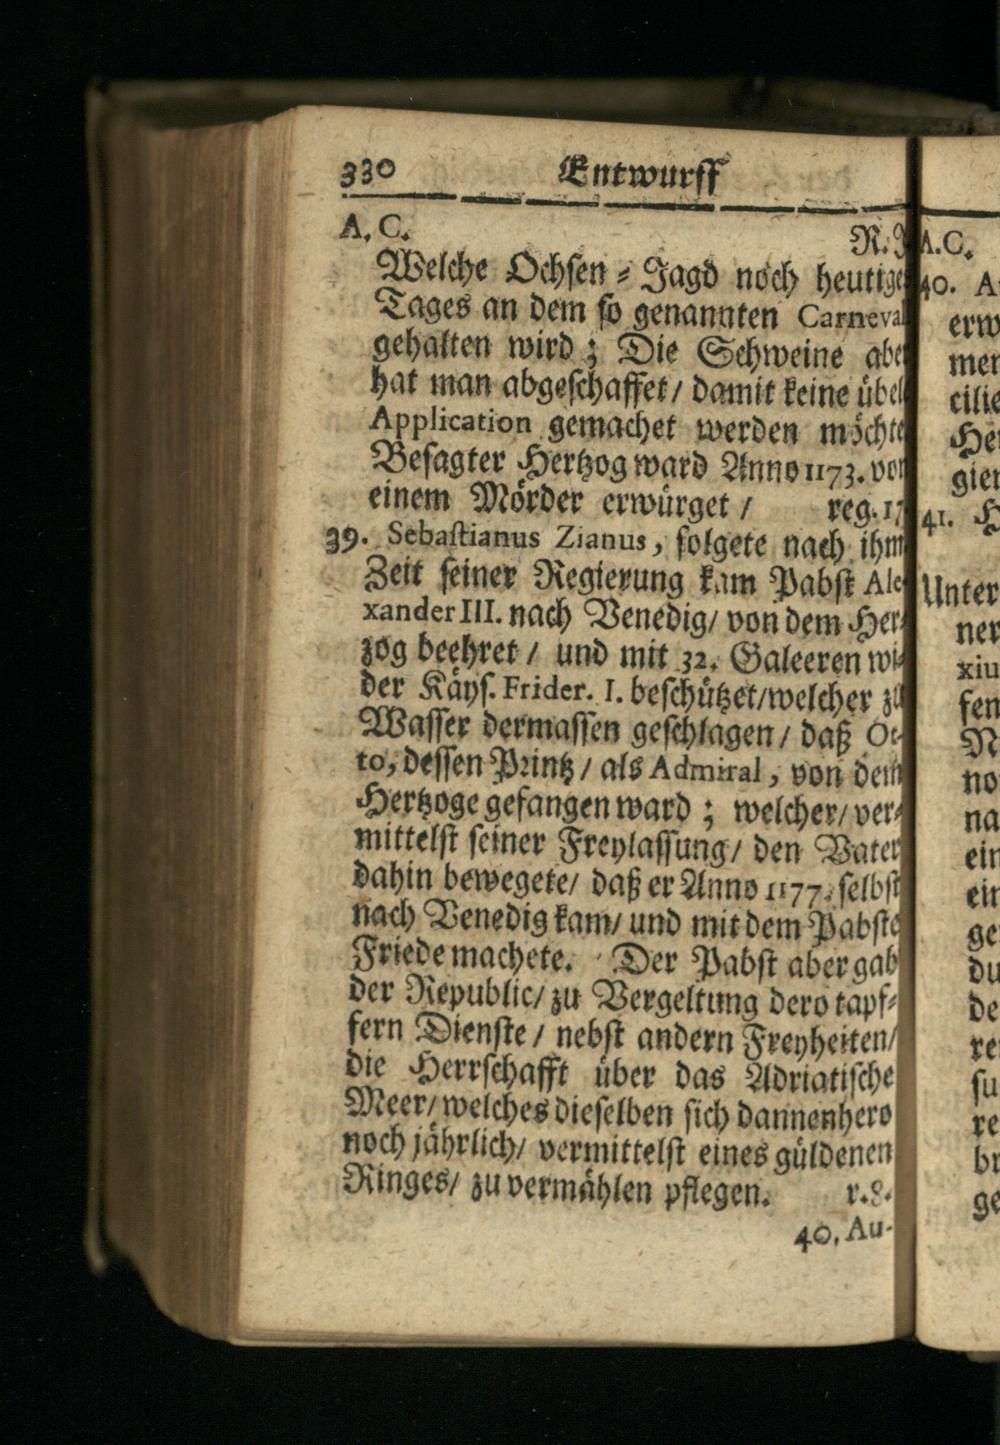 330 Entwurff
A. C. R. J
Welche Ochsen-Jagd noch heutige
Tages an dem so genannten Carneval
gehalten wird; Die Schweine abe
hat man abgeschaffet/ damit keine übel
Application gemachet werden möchte
Besagter Hertzog ward Anno 1173. von
einem Mörder erwürget/ reg. 17
39. Sebastianus Zianus, folgete nach ihm
Zeit seiner Regierung kam Pabst Ale-
xander III. nach Venedig/ von dem Her-
zog beehret/ und mit 32. Galeeren wi-
der Käys. Frider. I. beschützet/welcher zu
Wasser dermassen geschlagen/ daß Ot-
to, dessen Printz/ als Admiral, von dem
Hertzoge gefangen ward; welcher/ ver-
mittelst seiner Freylassung/ den Vater
dahin bewegete/ daß er Anno 1177. selbst
nach Venedig kam/ und mit dem Pabste
Friede machete. Der Pabst aber gab
der Republic/ zu Vergeltung dero tapf-
fern Dienste/ nebst andern Freyheiten/
die Herrschafft über das Adriatische
Meer/ welches dieselben sich dannenhero
noch jährlich/ vermittelst eines güldenen
Ringes/ zu vermählen pflegen. r. 8.
40. Au-
A.C.
40. A
erw
men
cilie
He
gien
41. H
Unter
ner
xiu
fen
no
na
ein
ein
ge
du
de
re
su
re
br
ge